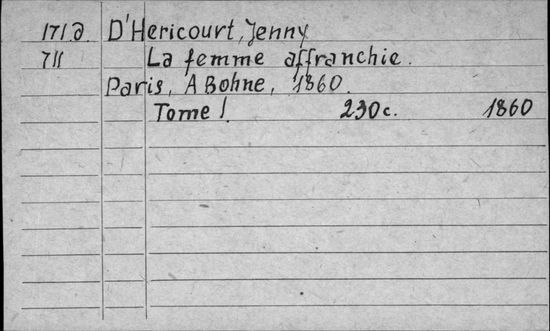 171д D'Hericourt, Jenny
711 La femme affranchie.
Paris, A Bohne, 1860.
Tome I. 230 c. 1860